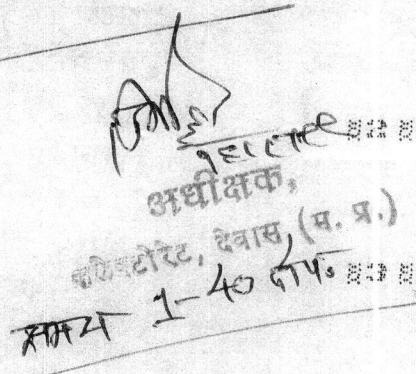 अधीक्षक,
कलेक्टोरेट, देवास (म. प्र.)
समय 1-40 दोप.